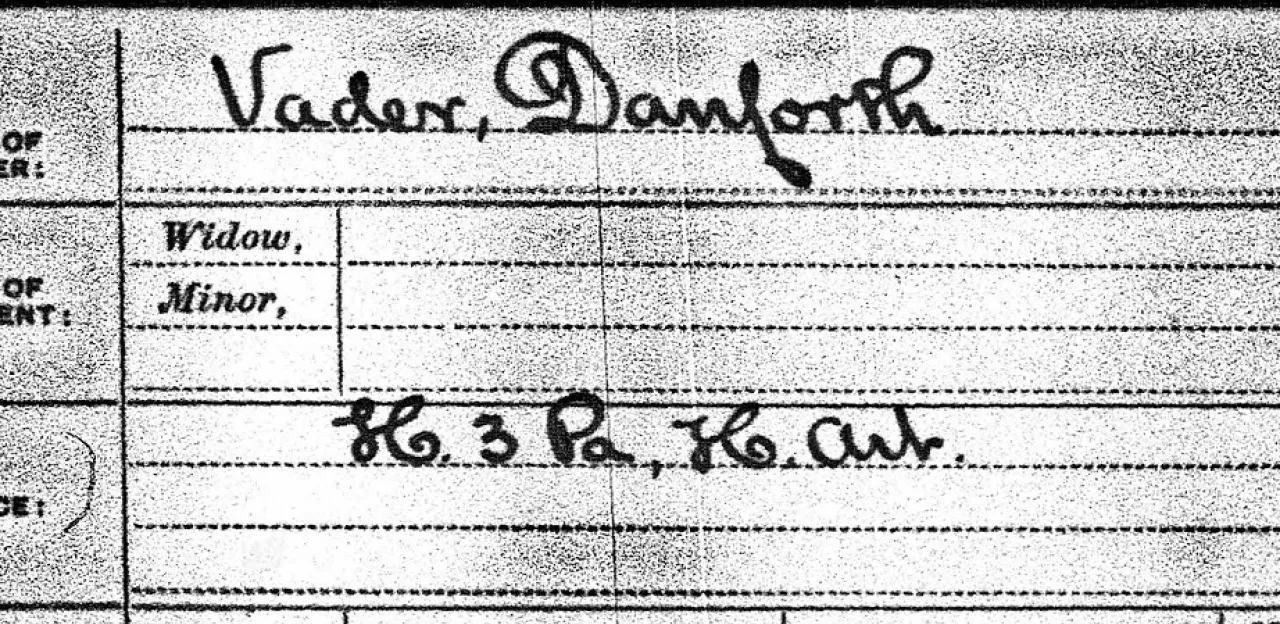 Vader, Danforth
OF
ER:
Widow,
OF
Minor,
ENT:
H. 3 Pa, H. Art.
CE: